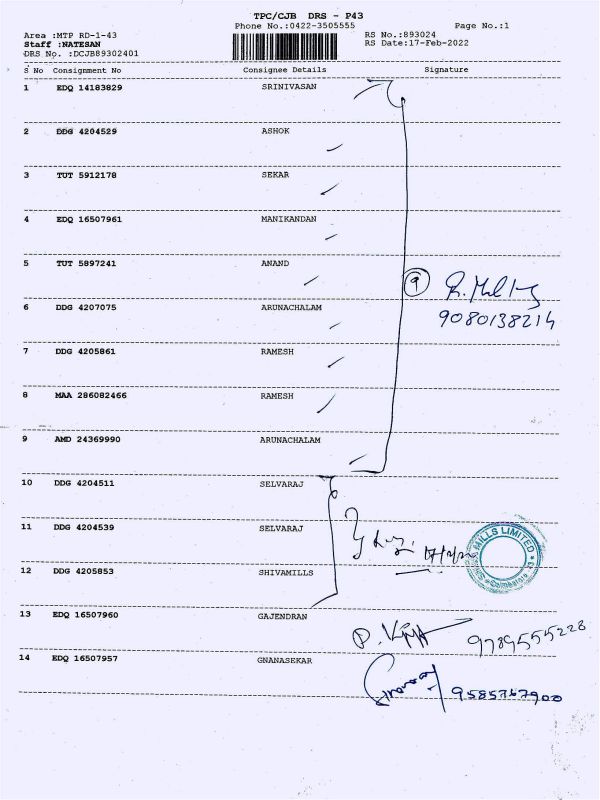 TPC/CJB DRS - P43
Phone No.:0422-3505555 Page No.:1
Area :MTP RD-1-43 RS No.:893024
Staff :NATESAN RS Date:17-Feb-2022
DRS No. :DCJB89302401
S No Consignment No Consignee Details Signature
1 EDQ 14183829 SRINIVASAN
2 DDG 4204529 ASHOK
3 TUT 5912178 SEKAR
4 EDQ 16507961 MANIKANDAN
5 TUT 5897241 ANAND
9
6 DDG 4207075 ARUNACHALAM
9080138214
7 DDG 4205861 RAMESH
8 MAA 286082466 RAMESH
9 AMD 24369990 ARUNACHALAM
10 DDG 4204511 SELVARAJ
11 DDG 4204539 SELVARAJ
MILLS LIMITED
Coimbatore
12 DDG 4205853 SHIVAMILLS
13 EDQ 16507960 GAJENDRAN
9789555228
14 EDQ 16507957 GNANASEKAR
9585767900